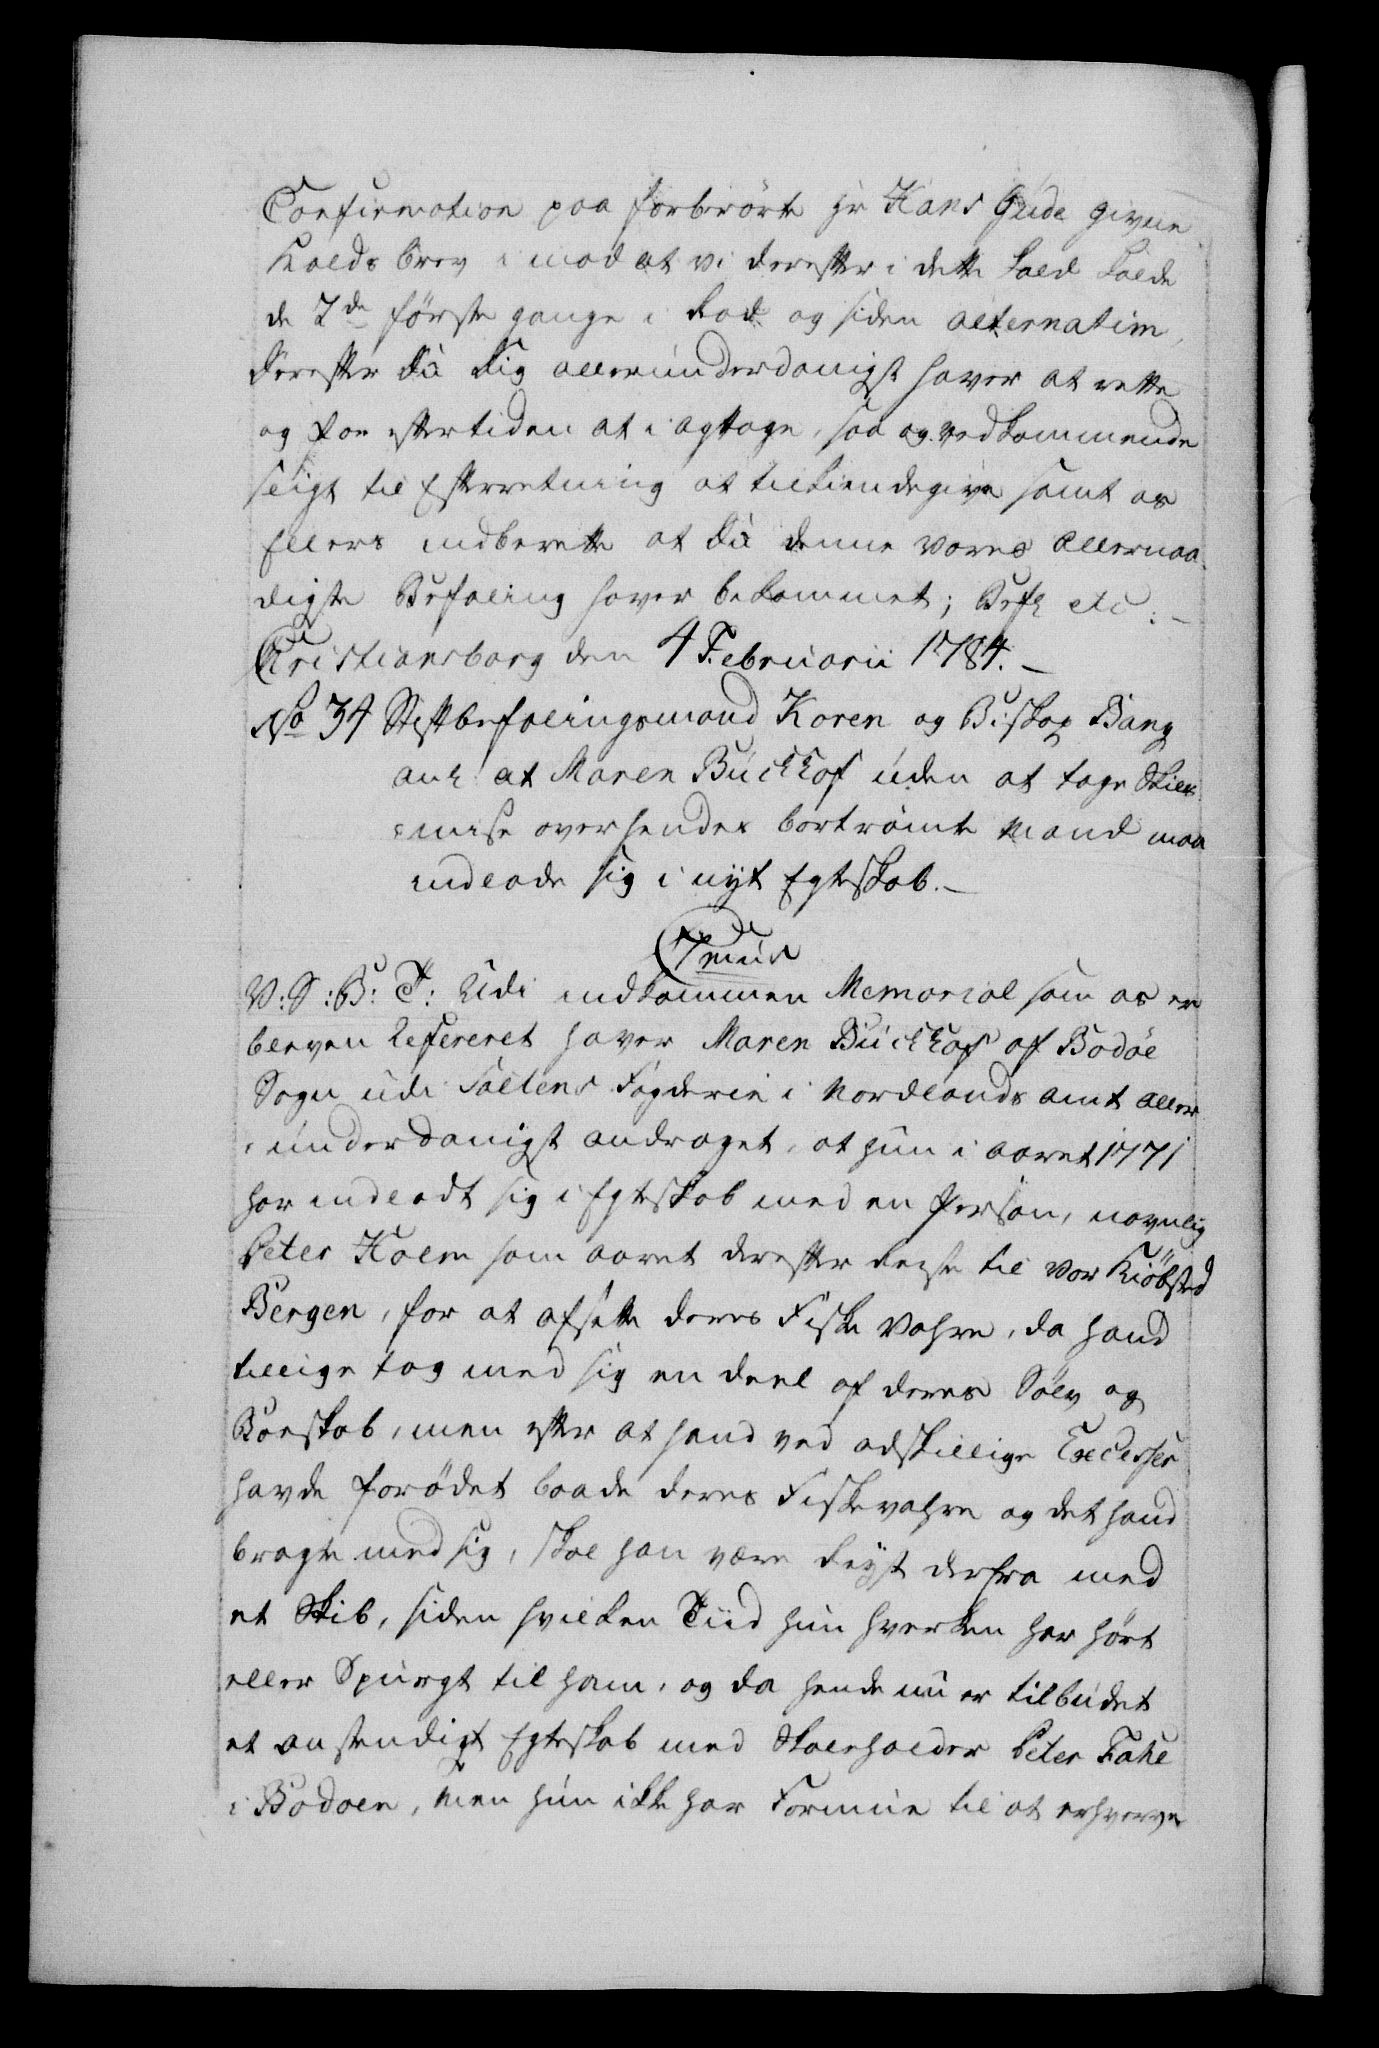 Confirmation paa forberörte Hr Hans Gude givne
Kalds brev imod at vi derefter i dette Kald kalde
de 2de förste gange i Rad og siden alternatim,
derefter du dig allerunderdanigst haver at rette
og for eftertiden at i agttage, saa og vedkommende
sligt til Efterretning at tilkiendegive samt os
Ellers indberette at du denne vores allernaa
digste Befaling haver bekommet; Befh etc: -
Christiansborg den 4 Februarii 1784. -
No 34 Stiftbefalingsmand Koren og Biskop Bang
anl: at Maren Buckhof uden at tage Skils
misse over hendes bortrömte Mand maa
indlade sig i nyt Egteskab. -
7mus
V: S: B: T: Udi indkommen Memorial som os er
bleven Refereret haver Maren Buckhof af Bodöe
Sogn udi Saltens Fogderie i Nordlands amt aller
underdanigst andraget, at hun i aaret 1771
har indladt sig i Egteskab med en Person, navnlig
Peter Holm som aaret derefter Reiste til vor Kiöbsted
Bergen, for at afsette deres Fiske Vahre, da hand
tillige tog med sig en deel af deres Sölv og
Boeskab, men efter at hand ved adskillige Excesser
havde forödet baade deres Fiskevahre og det hand
bragte med sig, skal han være Reyst derfra med
et Skib, siden hvilken Tiid hun hverken har hört
eller Spurgt til ham, og da hende nu er tilbudet
et anstendigt Egteskab med Skoeholder Peter Falch
i Bodoen, Men hun ikke har Formue til at erhverve